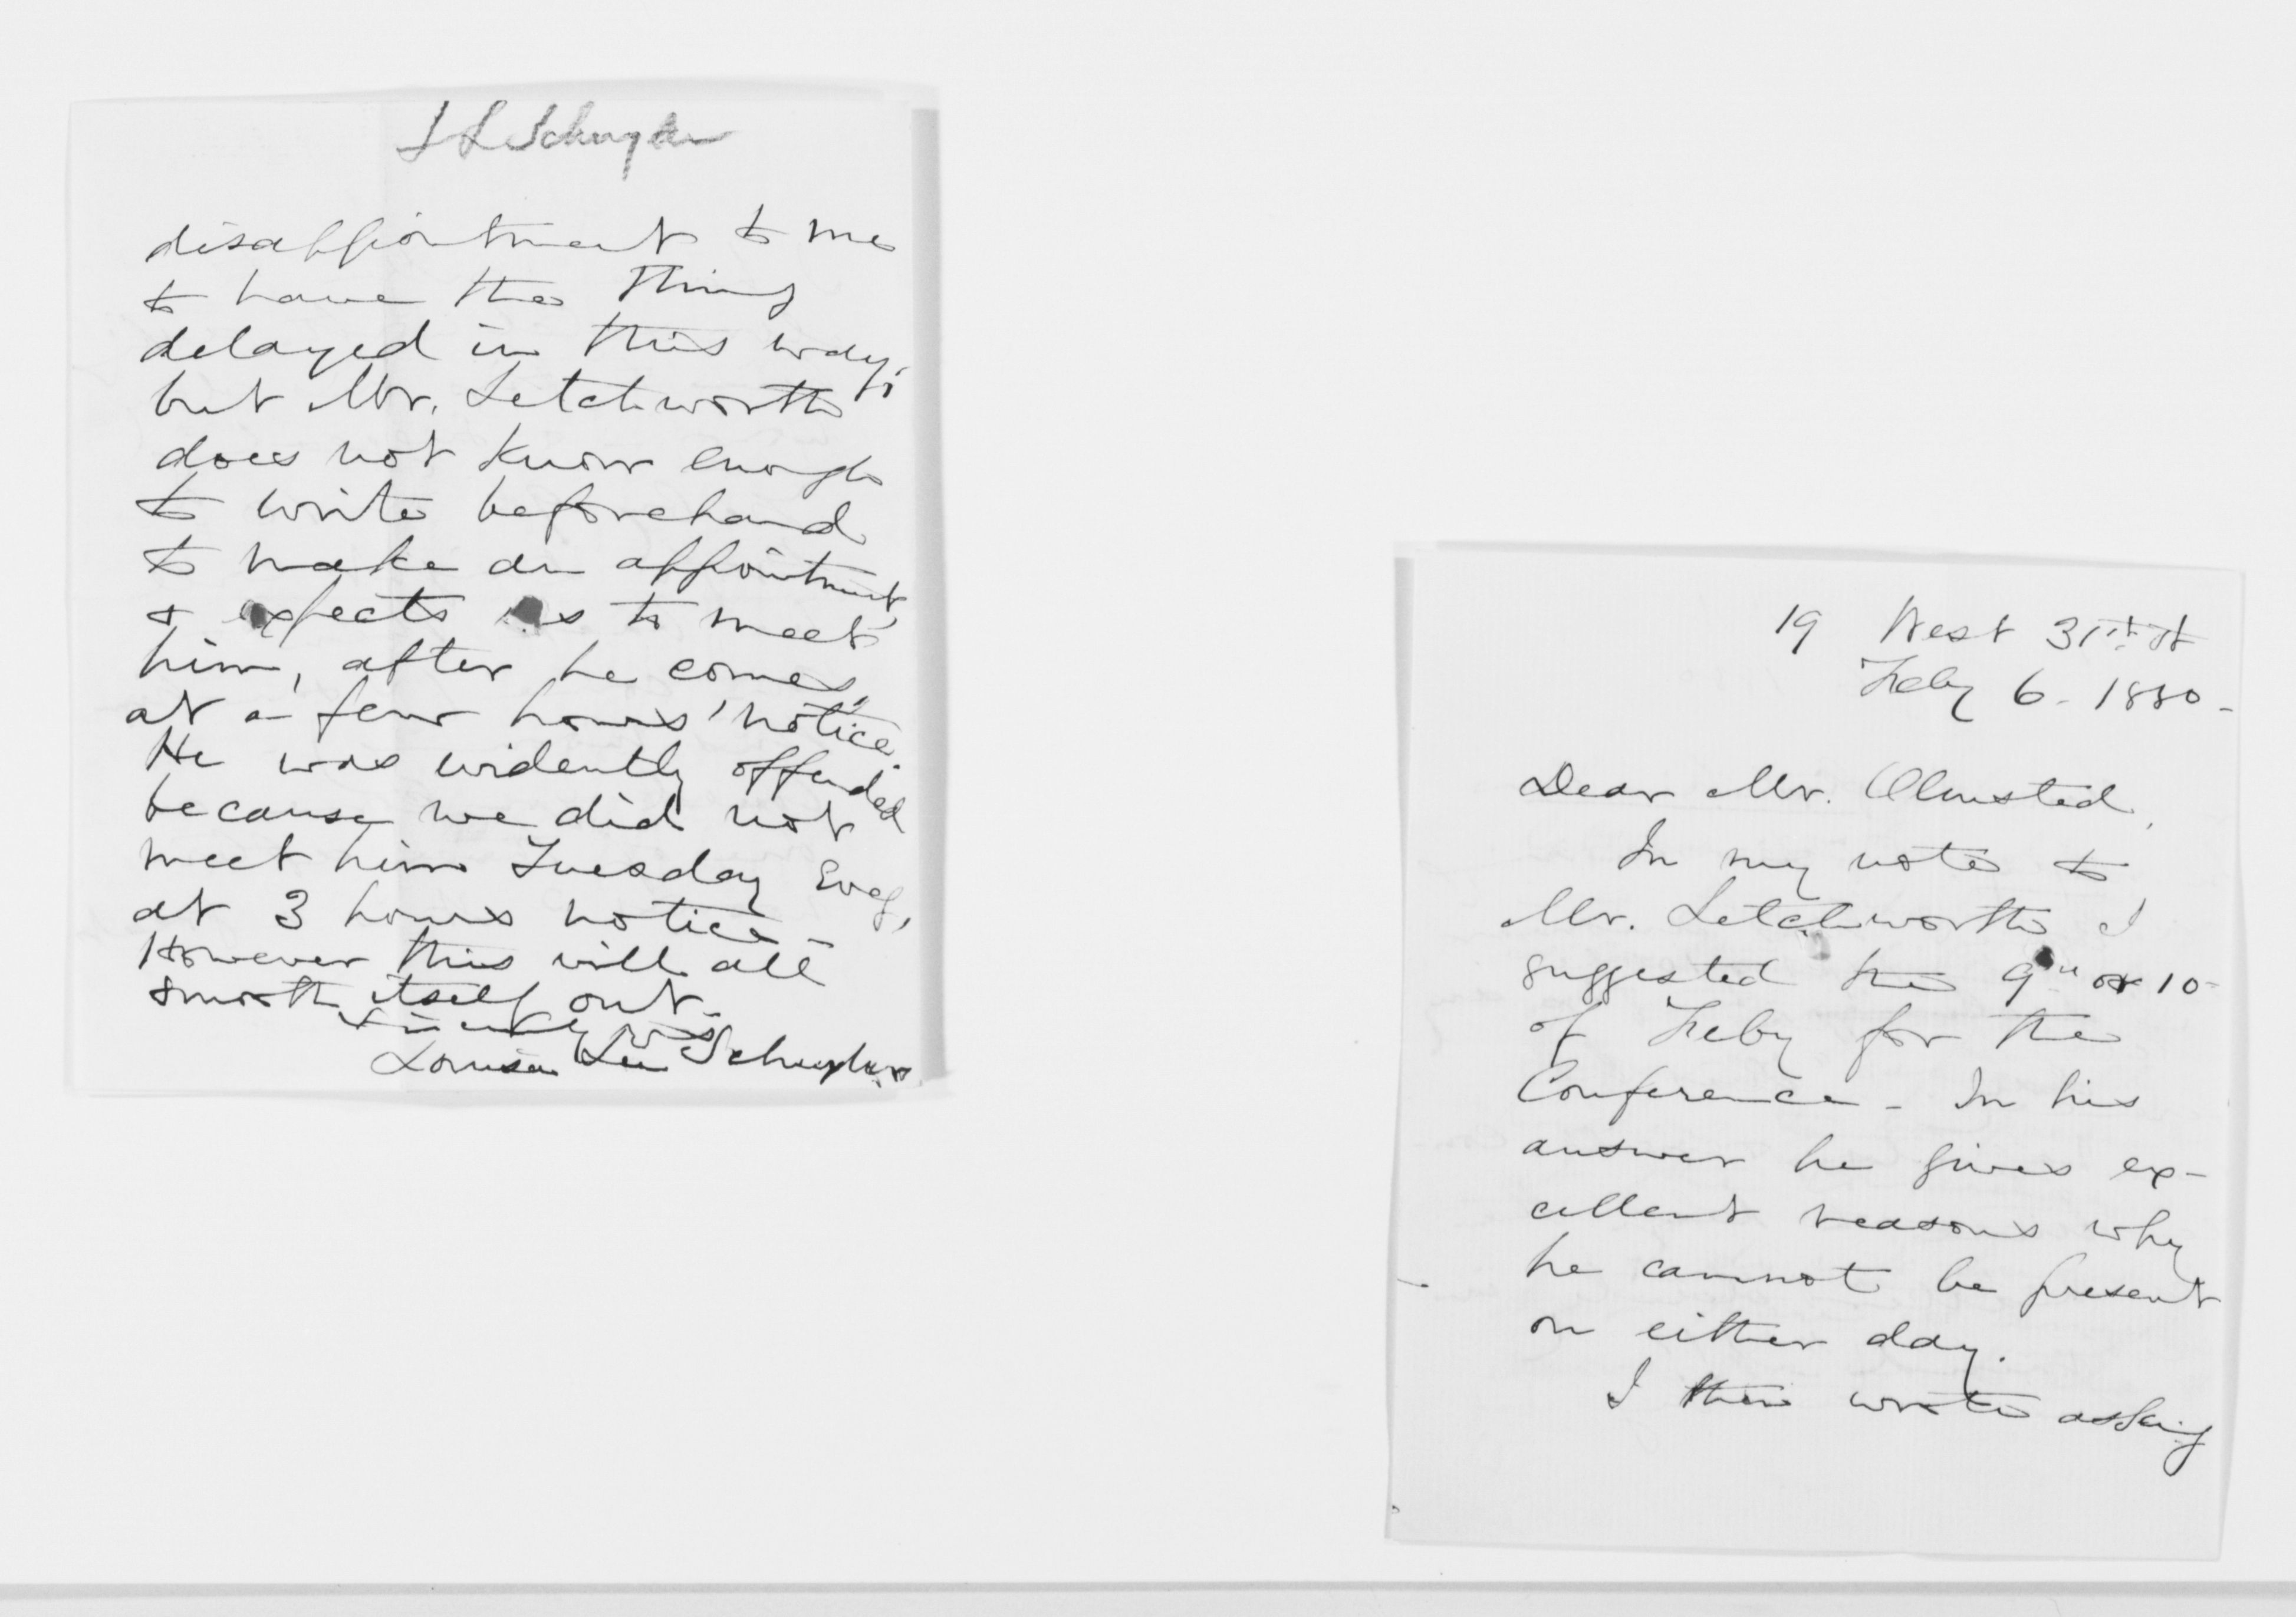 L L Schuyler
disappointment to me
to have the thing
delayed in this way;
but Mr. Letchworth
does not know enough
to write beforehand
to make an appointment,
& expects us to meet
him, after he comes,
at a few hours' notice.
He was evidently offended
because we did not
meet him Tuesday Eveg,
at 3 hours notice -
However this will all
smooth itself out.
Sincerely yrs
Louisa Lee Schuyler.
19 West 31st St
Feby 6. 1880 -
Dear Mr. Olmsted,
In my note to
Mr. Letchworth I
suggested the 9th or 10-
of Feby for the
Conference - In his
answer he gives ex-
cellent reasons why
he cannot be present
on either day.
I then wrote asking